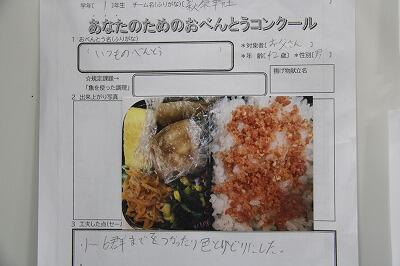 学年〔1〕年生 チーム名(ふりがな)〔
あなたのためのおべんとうコンクール
1 おべんとう名(ふりがな)
いつものべんとう
*対象者〔お父さん〕
*年 齢〔42歳〕*性別〔男〕
☆規定課題→
「魚を使った調理」
揚げ物献立名
2 出来上がり写真
3 工夫した点(セー
1~6群までをつかったり色とりどりにした。